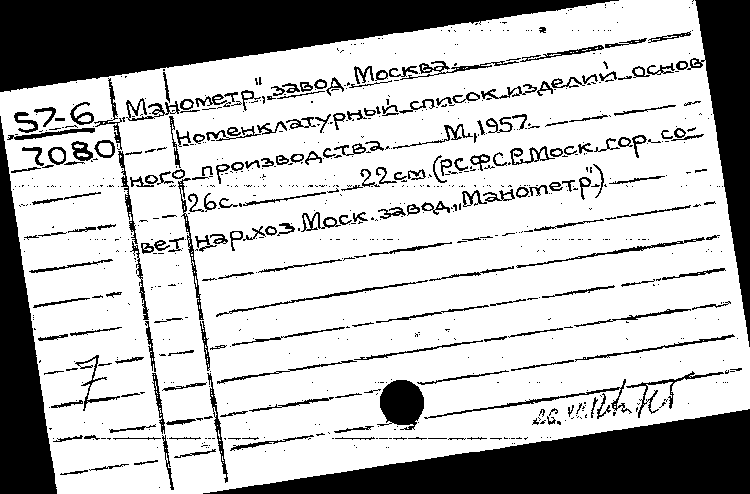 57-6
7080
„Манометр", завод. Москва.
Номенклатурный список изделий основ
ного производства. М., 1957.
26с. 22см. (РСФСР. Моск. гор. со-
вет нар. хоз. Моск. завод „Манометр")
7